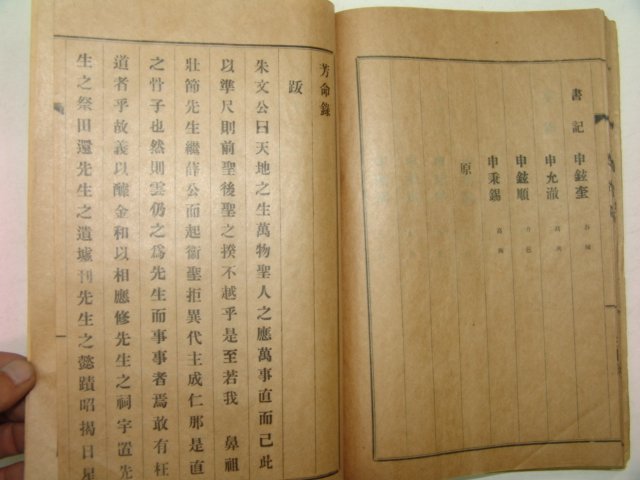 書記 申鉉奎
申允澈
申鉉順
申秉錫
原
芳命錄
跋
朱文公曰天地之生萬物聖人之應萬事直而已此
以準尺則前聖後聖之揆不越乎是至若我 鼻祖
壯節先生繼薛公而起衛聖拒異代主成仁那是直
之骨子也然則雲仍之爲先生而事事者焉敢有枉
道者乎故義以醵金和以相應修先生之祠宇置先
生之祭田還先生之遺墟刊先生之懿蹟昭揭日星